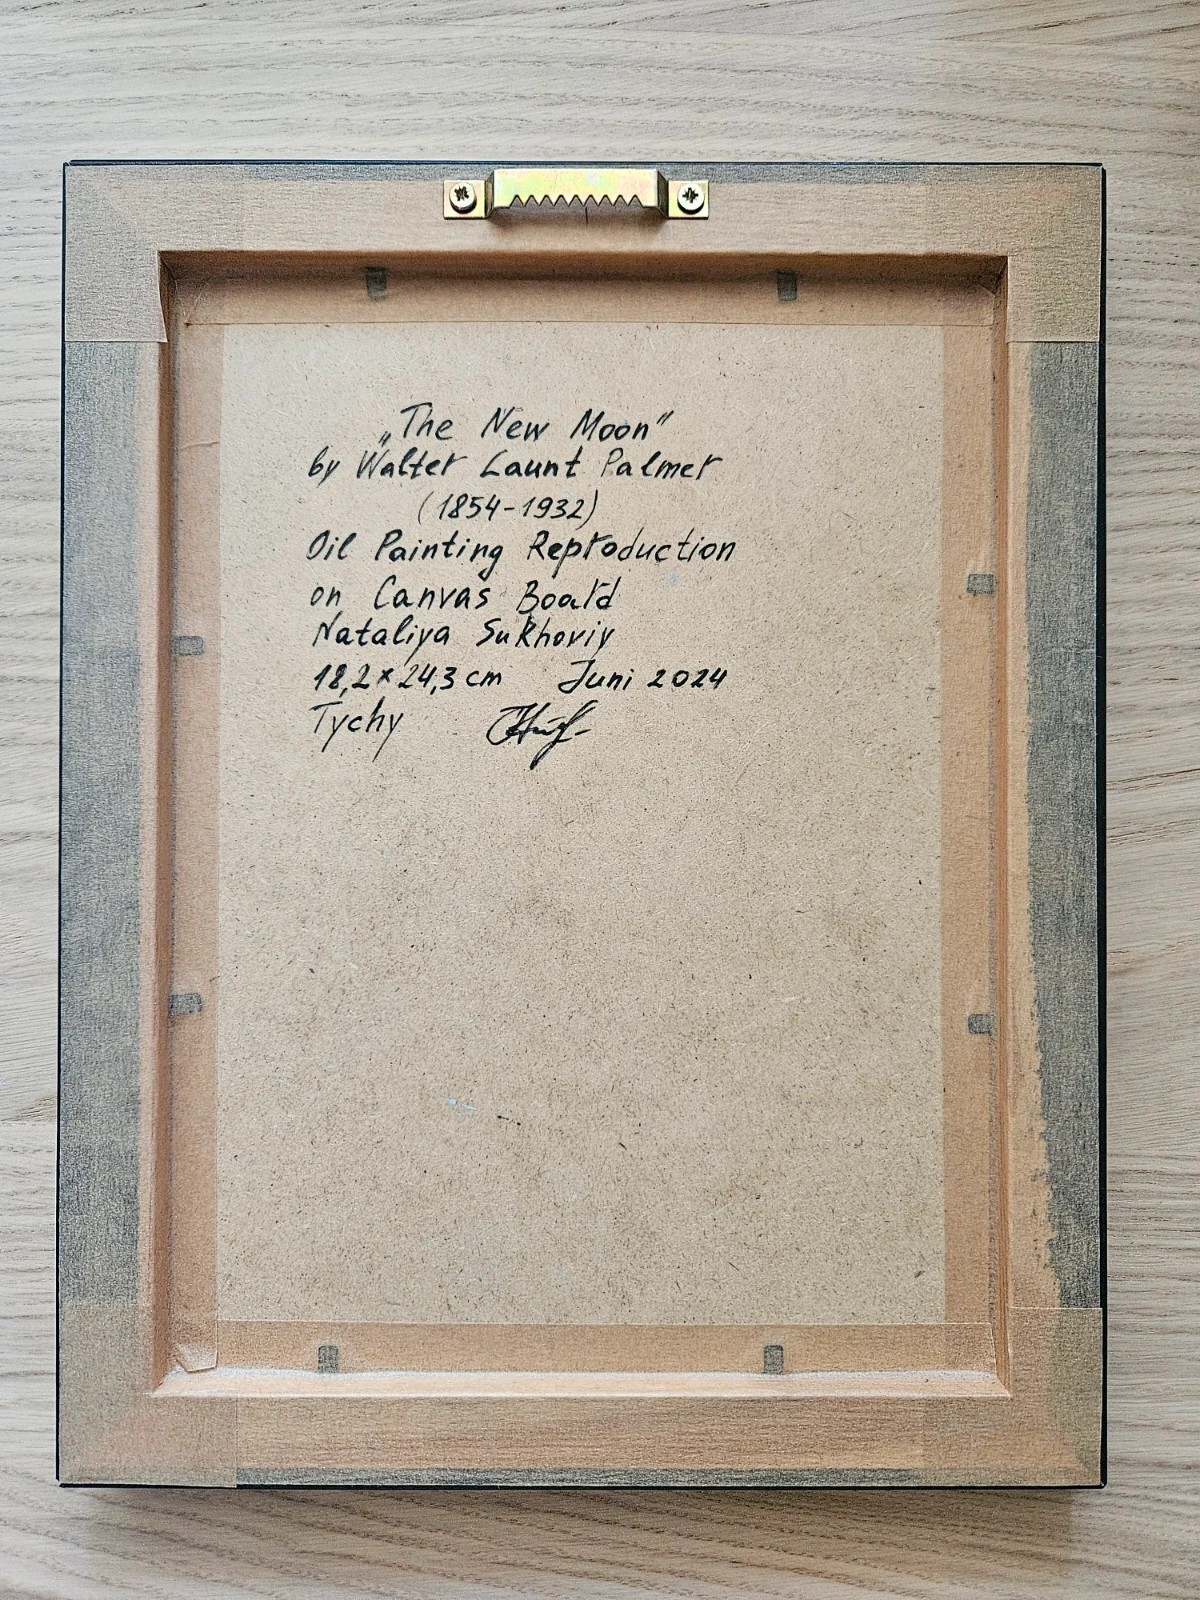 „The New Moon"
by Walter Launt Palmer
(1854-1932)
Oil Painting Reproduction
on Canvas Board
Nataliya Sukhoviy
18,2×24,3 cm Juni 2024
Tychy